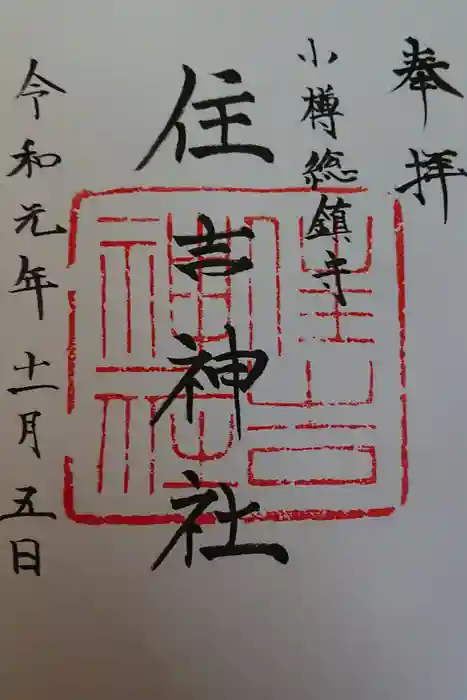 奉拝
小樽総鎮守
住吉神社
令和元年十一月五日
住吉
神社